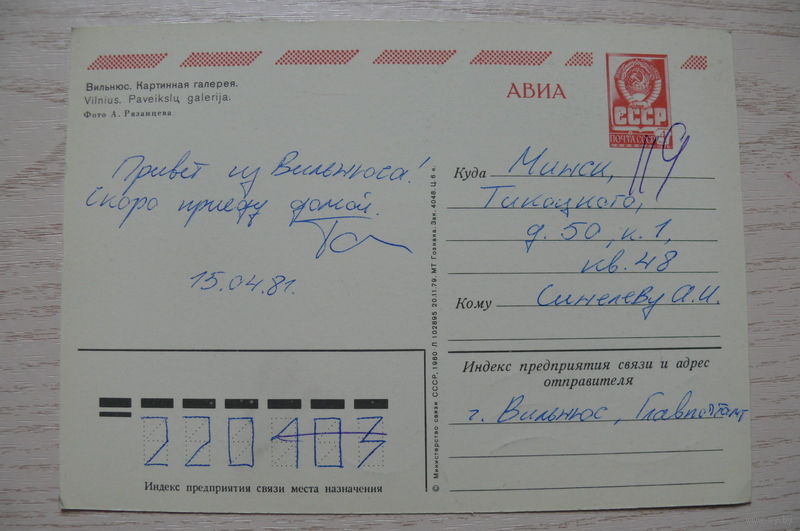 Вильнюс. Картинная галерея.
Vilnius. Paveikslų galerija.
Фото А. Рязанцева
АВИА
СССР
ПОЧТА СССР
119
Привет из Вильнюса!
Скоро приеду домой.
15.04.81.
Куда Минск,
Тикоцкого,
д. 50, к. 1,
кв. 48
Кому Синелеву А.И.
Индекс предприятия связи и адрес
отправителя
г. Вильнюс, Главпочтамт
220103
Индекс предприятия связи места назначения
© Министерство связи СССР, 1980 Л 102895 20.11.79. МТ Гознака. Зак. 4048. Ц. 6 к.